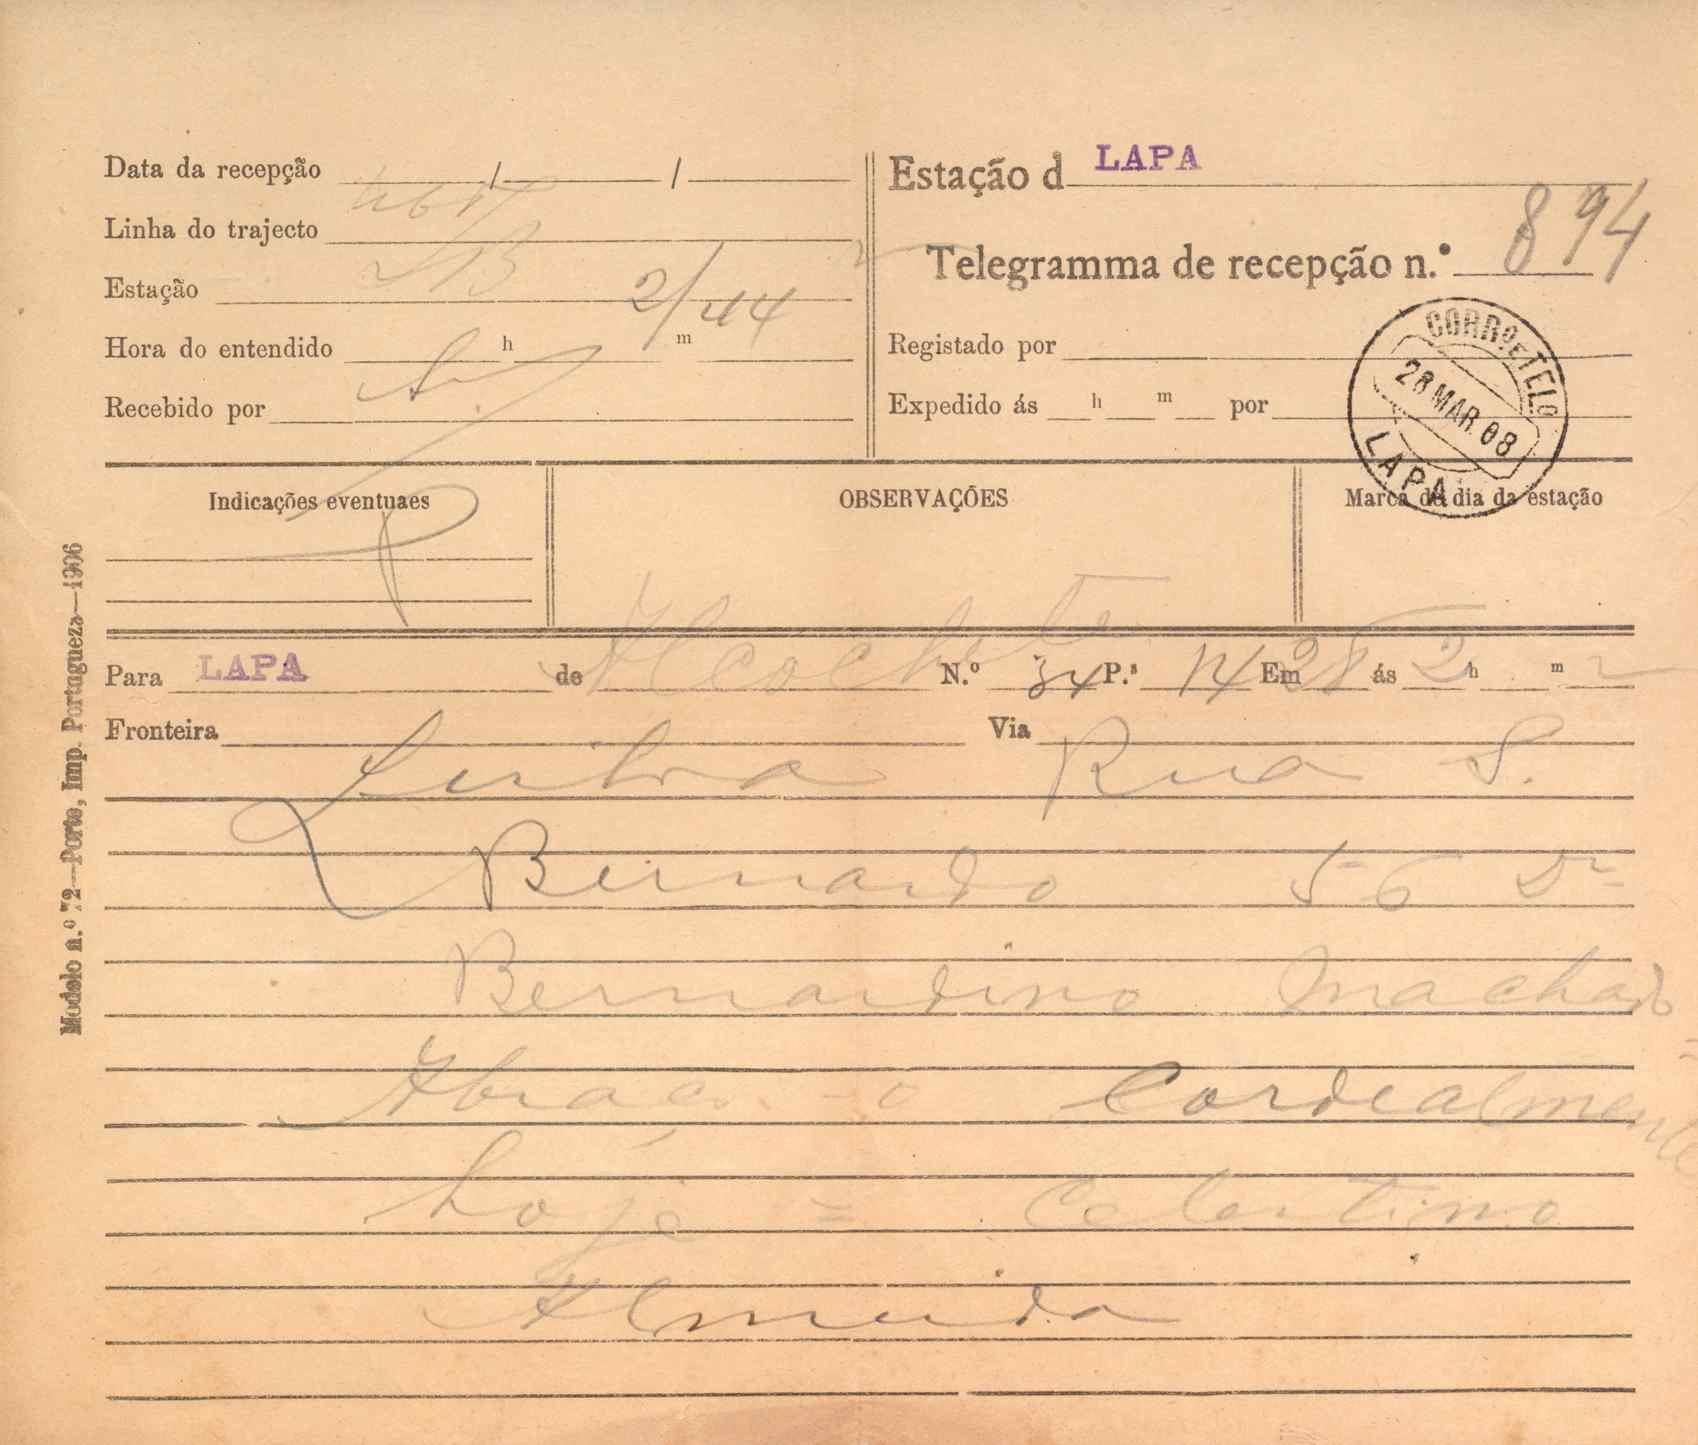 Data da recepção / /
Linha do trajecto
Estação
Hora do entendido h 2/44 m
Recebido por
Estação d LAPA
Telegramma de recepção n.º 894
Registado por
Expedido ás h m por
CORRO E TELO
28 MAR. 08
LAPA
Indicações eventuaes
OBSERVAÇÕES
Marca do dia da estação
Para LAPA de Alcochete N.º 34 P.s 14 Em 28 ás 2 h m
Fronteira Via
Lisboa Rua S.
Bernardo 56 Dr
Bernardino Machado
=
Abraço - o Cordealmente
hoje = Celestino
Almeida
Modelo n.º 72—Porto, Imp. Portugueza—1906